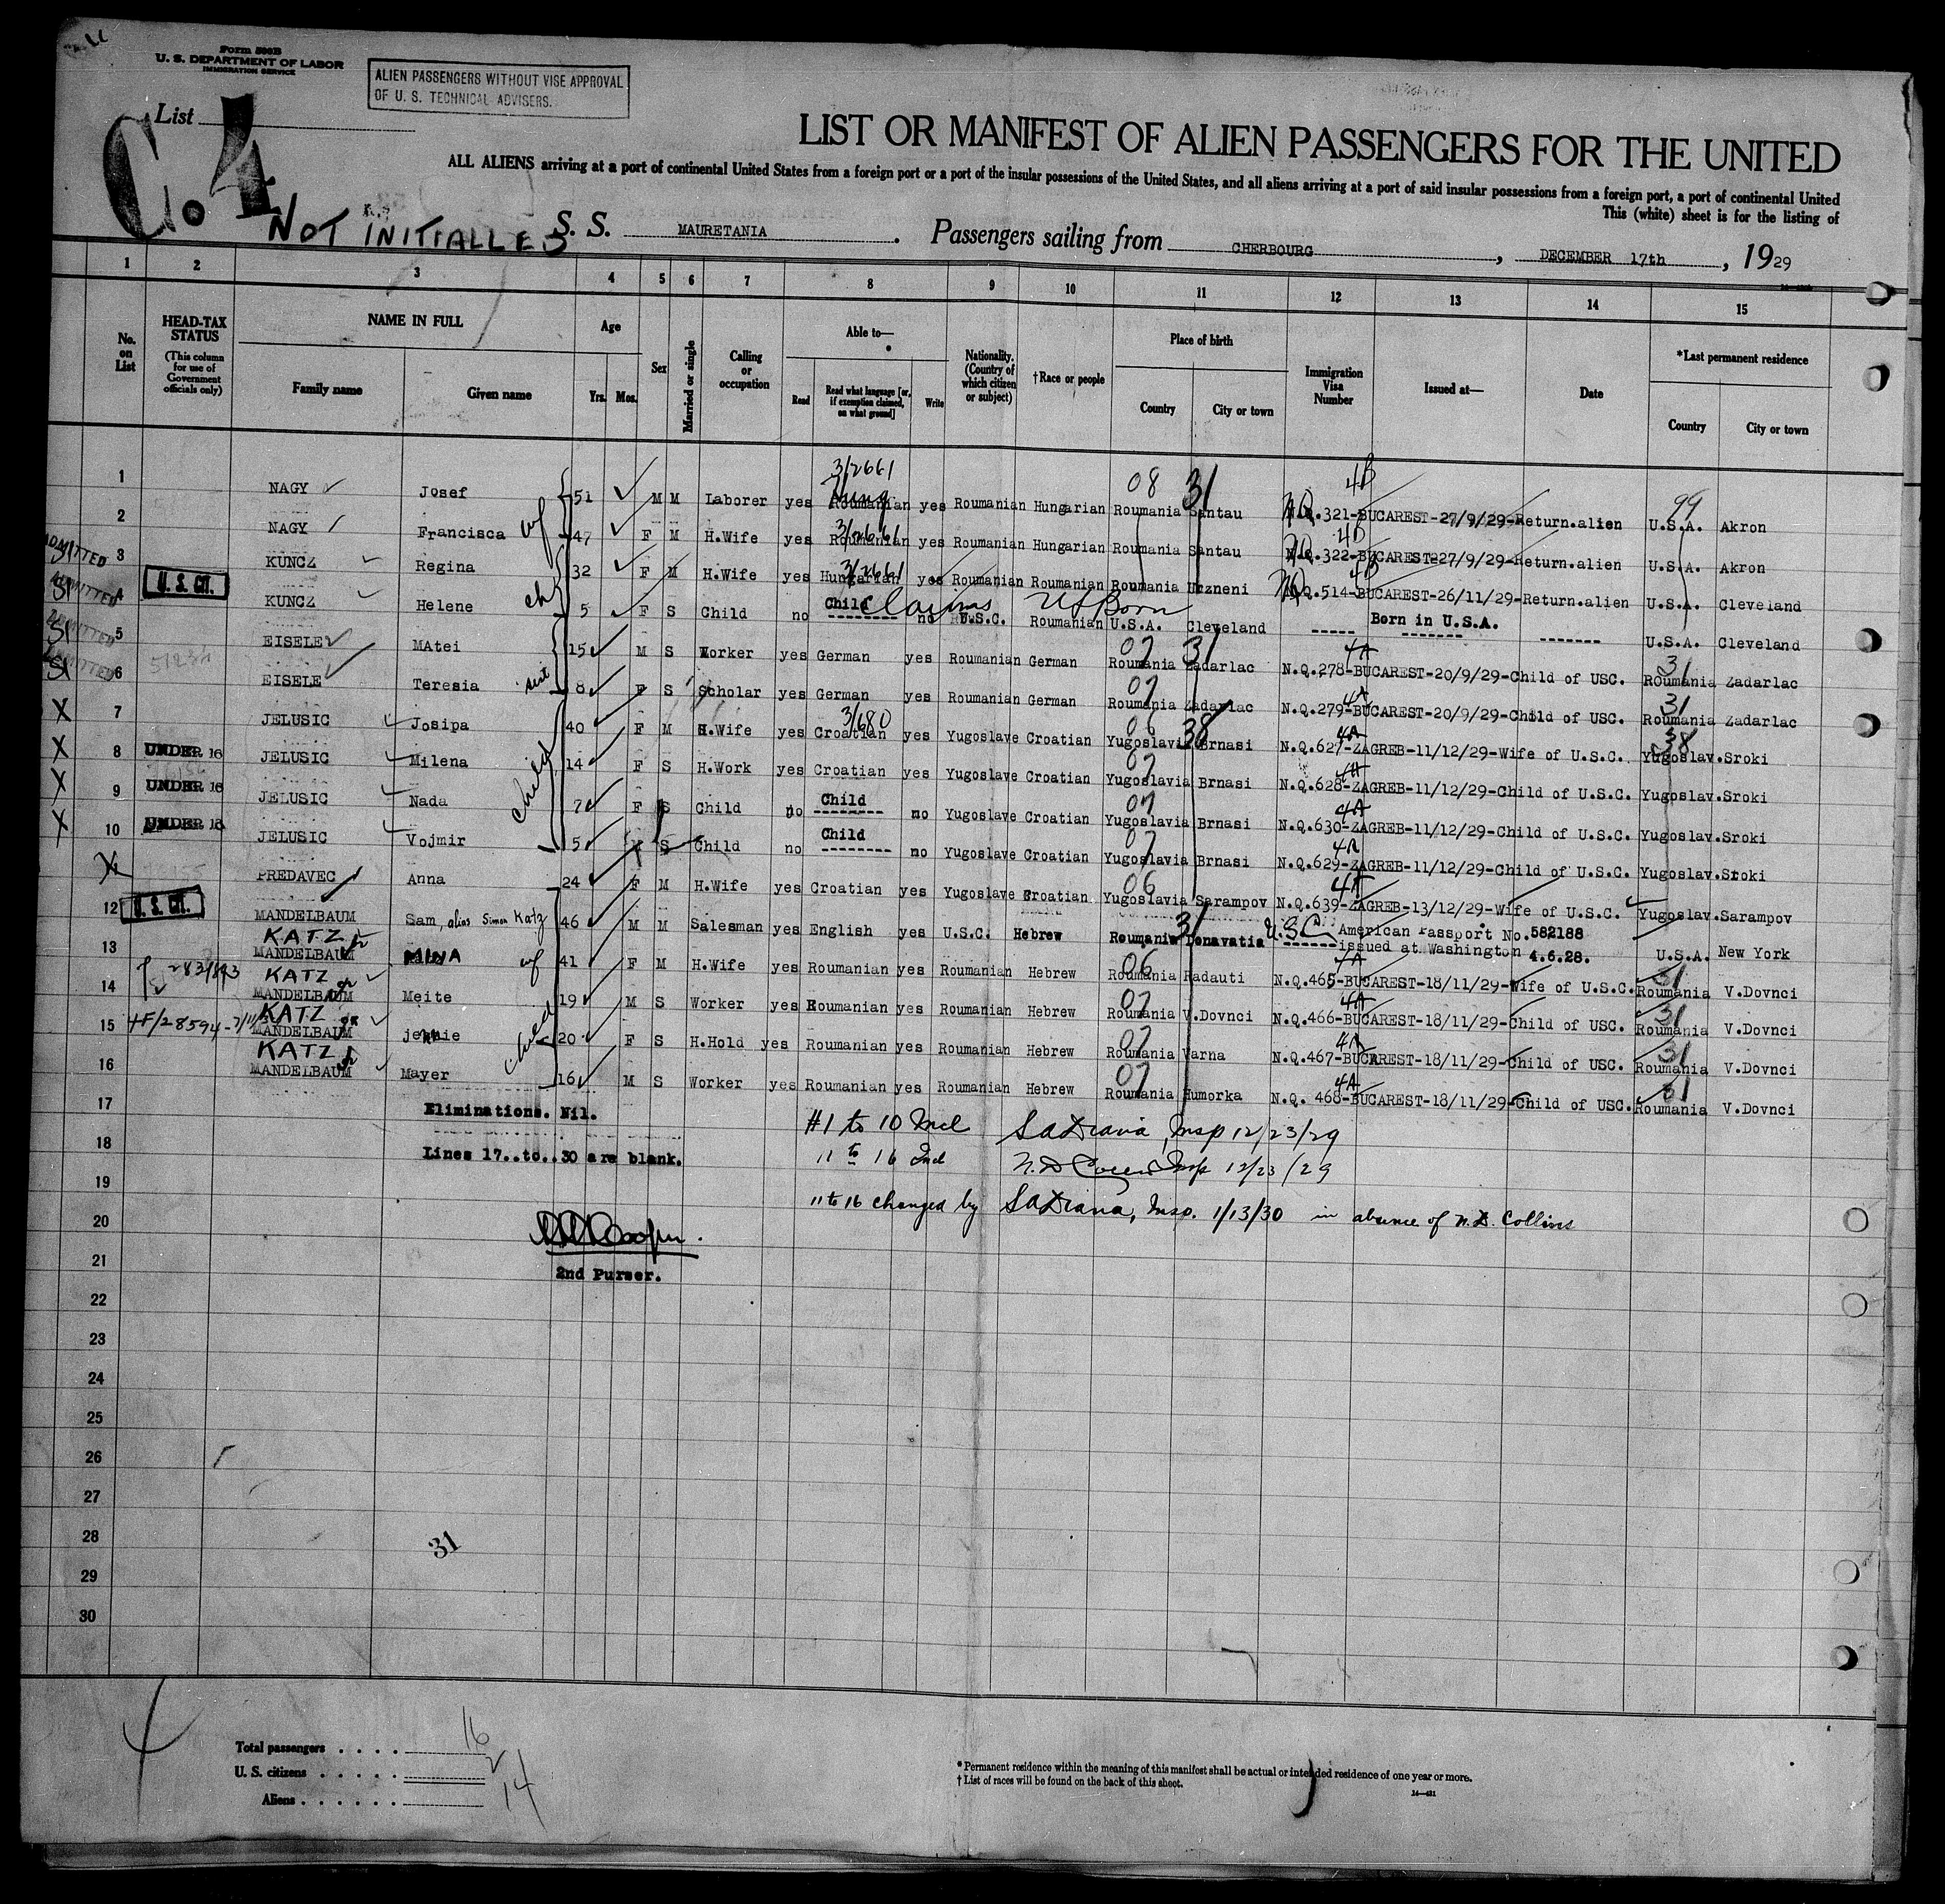 Form 500B
U. S. DEPARTMENT OF LABOR
IMMIGRATION SERVICE
ALIEN PASSENGERS WITHOUT VISE APPROVAL
OF U. S. TECHNICAL ADVISERS.
List
C. 4
NOT INITIALLED
LIST OR MANIFEST OF ALIEN PASSENGERS FOR THE UNITED
ALL ALIENS arriving at a port of continental United States from a foreign port or a port of the insular possessions of the United States, and all aliens arriving at a port of said insular possessions from a foreign port, a port of continental United
This (white) sheet is for the listing of
S. S. MAURETANIA . Passengers sailing from CHERBOURG , DECEMBER 17th , 1929
1 2 3 4 5 6 7 8 9 10 11 12 13 14 15
No. on List
HEAD-TAX STATUS
(This column for use of Government officials only)
NAME IN FULL
Family name Given name
Age
Yrs. Mos.
Sex
Married or single
Calling or occupation
Able to—
Read Read what language [or, if exemption claimed, on what ground] Write
Nationality. (Country of which citizen or subject)
†Race or people
Place of birth
Country City or town
Immigration Visa Number
Issued at—
Date
*Last permanent residence
Country City or town
3/2661 08 31 4B 99
1 NAGY Josef 51 M M Laborer yes Roumanian Hung yes Roumanian Hungarian Roumania Santau N.Q.321-BUCAREST-27/9/29-Return.alien U.S.A. Akron
2 NAGY Francisca wf 47 F M H.Wife yes Roumanian yes Roumanian Hungarian Roumania Santau N.Q.322-BUCAREST-27/9/29-Return.alien U.S.A. Akron
ADMITTED SI 3 KUNCZ Regina 32 F M H.Wife yes Hungarian 3/2661 yes Roumanian Roumanian Roumania Urzneni N.Q.514-BUCAREST-26/11/29-Return.alien U.S.A. Cleveland
ADMITTED SI 4 U. S. CIT. KUNCZ Helene ch 5 F S Child no Child -------- no U.S.C. Roumanian U.S.A. Cleveland ----- Born in U.S.A. ------- U.S.A. Cleveland
Claims US Born
ADMITTED SI 5 EISELE MAtei 15 M S Worker yes German yes Roumanian German Roumania Zadarlac 07 31 4A N.Q.278-BUCAREST-20/9/29-Child of USC. 31 Roumania Zadarlac
ADMITTED SI 6 EISELE Teresia sist 8 F S Scholar yes German yes Roumanian German Roumania Zadarlac 07 4A N.Q.279-BUCAREST-20/9/29-Child of USC. 31 Roumania Zadarlac
X 7 JELUSIC Josipa 40 F M H.Wife yes Croatian 3/680 yes Yugoslave Croatian Yugoslavia Brnasi 06 38 4A N.Q.627-ZAGREB-11/12/29-Wife of U.S.C. 38 Yugoslav.Sroki
X 8 UNDER 16 JELUSIC Milena 14 F S H.Work yes Croatian yes Yugoslave Croatian Yugoslavia Brnasi 07 4A N.Q.628-ZAGREB-11/12/29-Child of U.S.C. Yugoslav.Sroki
X 9 UNDER 16 JELUSIC Nada 7 F S Child no Child -------- no Yugoslave Croatian Yugoslavia Brnasi 07 4A N.Q.630-ZAGREB-11/12/29-Child of U.S.C. Yugoslav.Sroki
X 10 UNDER 16 JELUSIC Vojmir 5 M S Child no Child -------- no Yugoslave Croatian Yugoslavia Brnasi 07 4A N.Q.629-ZAGREB-11/12/29-Child of U.S.C. Yugoslav.Sroki
X PREDAVEC Anna 24 F M H.Wife yes Croatian yes Yugoslave Croatian Yugoslavia Sarampov 06 4A N.Q.639-ZAGREB-13/12/29-Wife of U.S.C. Yugoslav.Sarampov
12 U. S. CIT. MANDELBAUM Sam, alias Simon Katz 46 M M Salesman yes English yes U.S.C. Hebrew Roumania Donavatia 31 U.S.C. American Passport No.582188 issued at Washington 4.6.28. U.S.A. New York
13 KATZ or MANDELBAUM MINA wf 41 F M H.Wife yes Roumanian yes Roumanian Hebrew Roumania Radauti 06 4A N.Q.465-BUCAREST-18/11/29-Wife of U.S.C. 31 Roumania V.Dovnci
14 KATZ or MANDELBAUM Meite 19 M S Worker yes Roumanian yes Roumanian Hebrew Roumania V.Dovnci 07 4A N.Q.466-BUCAREST-18/11/29-Child of USC. 31 Roumania V.Dovnci
15 KATZ or MANDELBAUM 20 F S H.Hold yes Roumanian yes Roumanian Hebrew Roumania Varna 07 4A N.Q.467-BUCAREST-18/11/29-Child of USC. 31 Roumania V.Dovnci
16 KATZ or MANDELBAUM Mayer 16 M S Worker yes Roumanian yes Roumanian Hebrew Roumania Humorka 07 4A N.Q. 468-BUCAREST-18/11/29-Child of USC. 31 Roumania V.Dovnci
17 Eliminations. Nil. #1 to 10 Incl SADiana, Insp 12/23/29
18 Lines 17..to..30 are blank. 11 to 16 Incl Insp 12/23/29
19 11 to 16 changed by SADiana, Insp. 1/13/30 in absence of N.D. Collins
20
21 2nd Purser.
22
23
24
25
26
27
28 31
29
30
Total passengers . . . . 16
U. S. citizens . . . . . 2
Aliens . . . . . . 14
* Permanent residence within the meaning of this manifest shall be actual or intended residence of one year or more.
† List of races will be found on the back of this sheet.